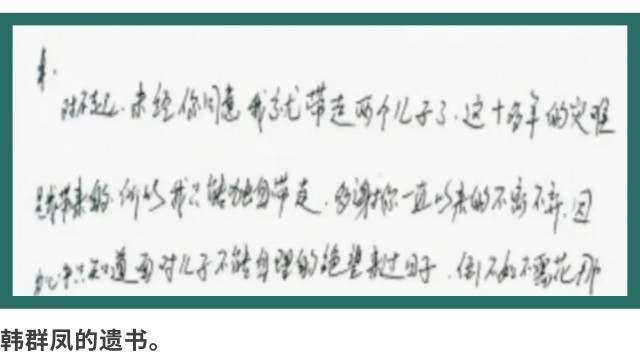 对不起、未经你同意我就带走两个儿子了、这十多年的灾难
是我带来的、所以我只能独自带走、多谢你一直以来的不离不弃、因
只知道面对儿子不能自理的绝望来过日子、倒不如不需花那
韩群凤的遗书。